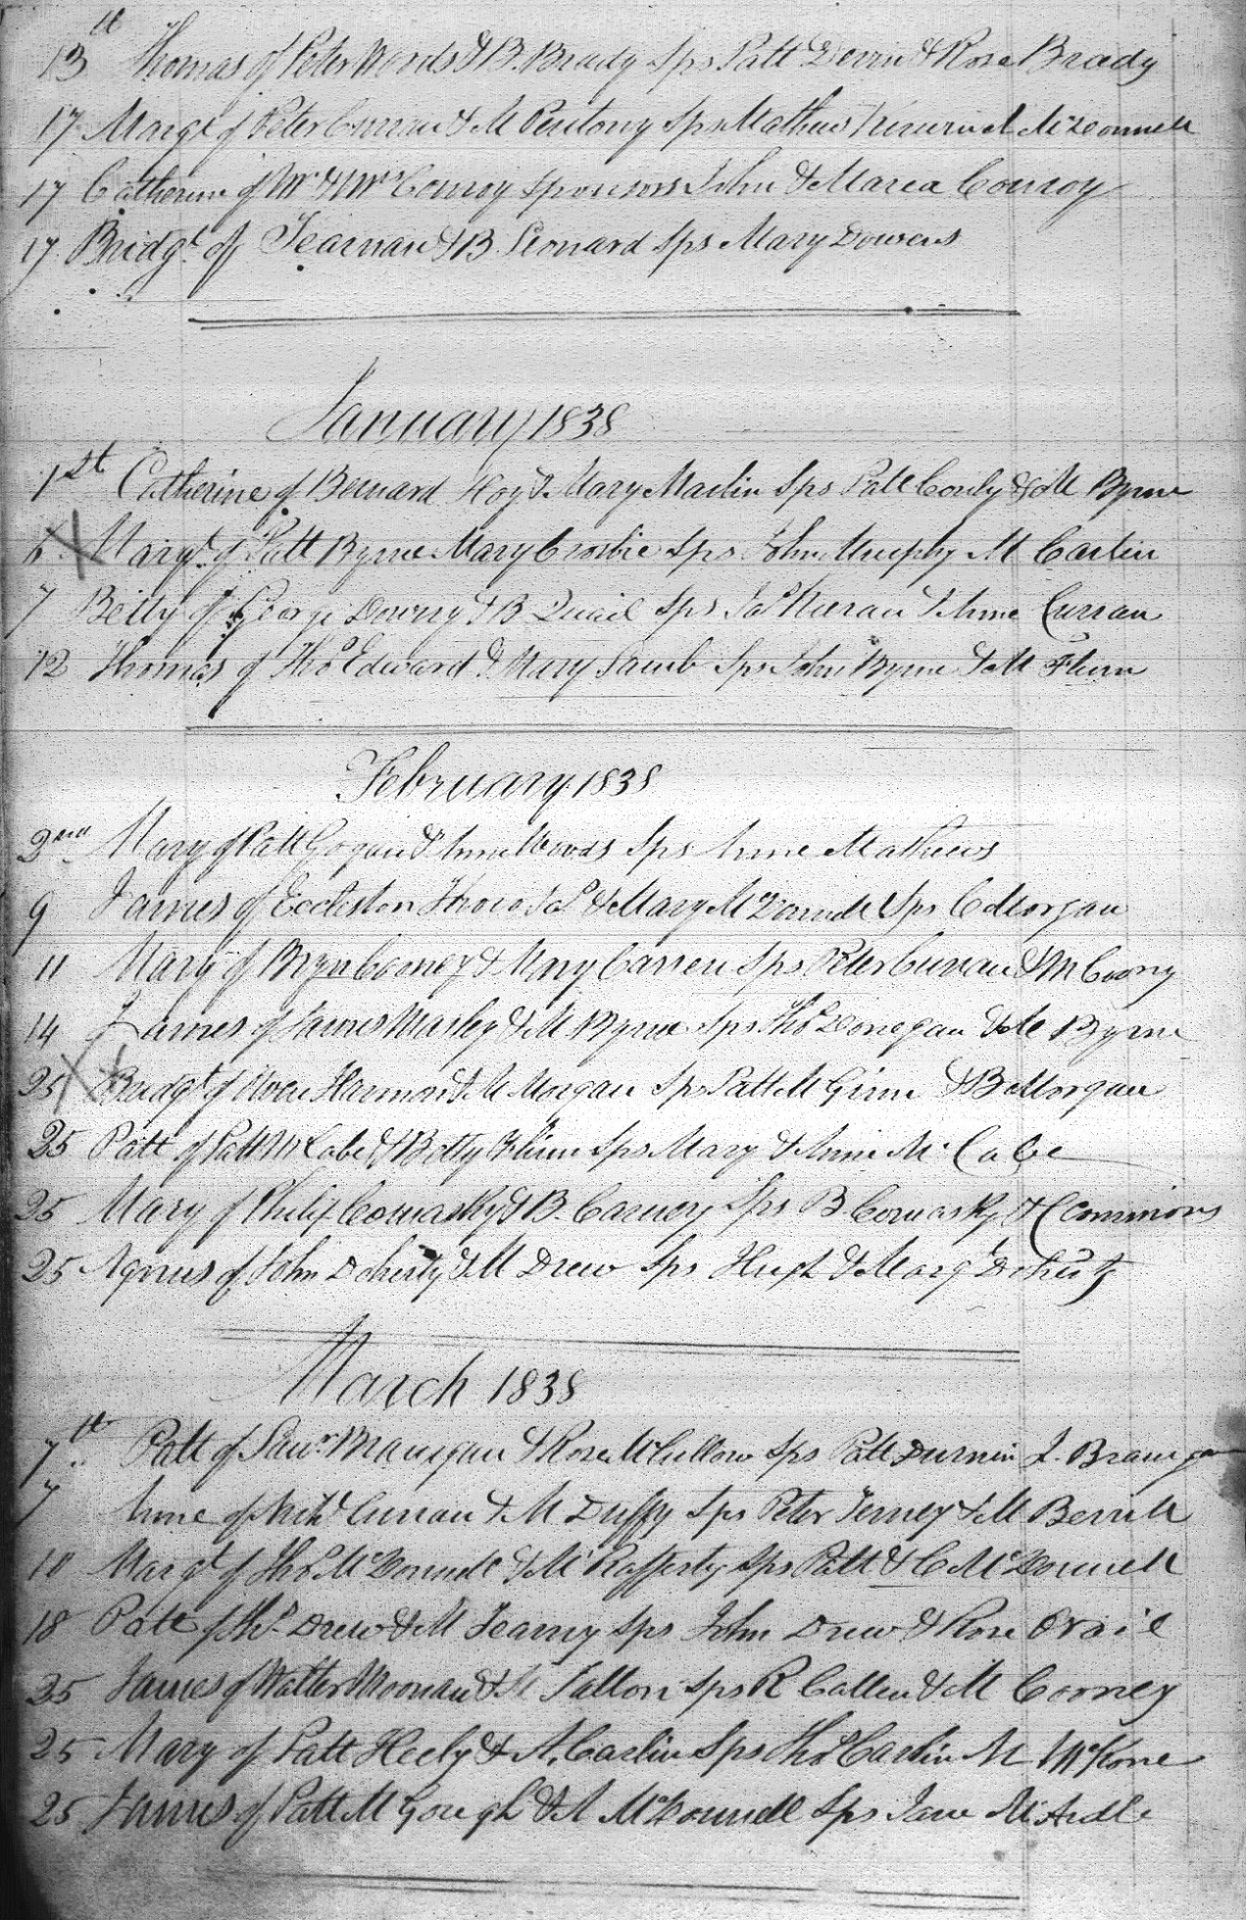 13th Thomas of Peter Woods & B. Brady Sps Patt Devin & Rose Brady
17 Margt of Peter Curran & M Pentony Sps Mathew M McDonnell
17 Catherine of Mr & Mrs Conroy sponsors John & Maria Conroy
17 Bridgt of Tearnan & B. Leonard Sps Mary Dowens
January 1838
1st Catherine of Bernard Hoy & Mary Martin Sps Patt Conly & M Byrne
6 Margt of Patt Byrne Mary Crosbie Sps John Murphy M Carlin
7 Betty of George Dowry & B Quail Sps Jas Kieran & Anne Curran
12 Thomas of Thos Edward & Mary Lamb Sps John Byrne & M Flinn
February 1838
2nd Mary of Patt Gogan & Anne Woods Sps Anne Mathews
9 James of Eccleston & Mary McDonnell Sps C Morgan
11 Mary of Bryn Cooney & Mary Carren Sps Peter Curran & M Coony
14 James of James Marky & M. Byrne Sps Thos Donegan & M Byrne
25 Bridgt of Owen Harmon & M Morgan Sps Patt M Ginn & B Morgan
25 Patt of Patt McCabe & Betty Flinn Sps Mary & Anne McCabe
25 Mary of Philip Comasky & B. Carney Sps B Comasky & C Commions
25 Agnus of John Doherty & M Drew Sps Hugh & Margt Doherty
March 1838
7th Patt of Lawr Branigan & Rose McCullow Sps Patt Durnin L. Branigan
7 Anne of Nichs Curran & M Duffy Sps Peter Terney & M Berrill
10 Margt of Thos McDonnell & M Rafferty Sps Patt & C McDonnell
18 Patt of Ths Drew & M Fearny Sps John Drew & Rose Quail
25 James of Walter Noonan & M Fallon Sps R Callen & M Cooney
25 Mary of Patt Heely & A. Carlin Sps Thos Carlin M McKone
25 James of Patt M Gough & A McDonnell Sps Jane McArdle